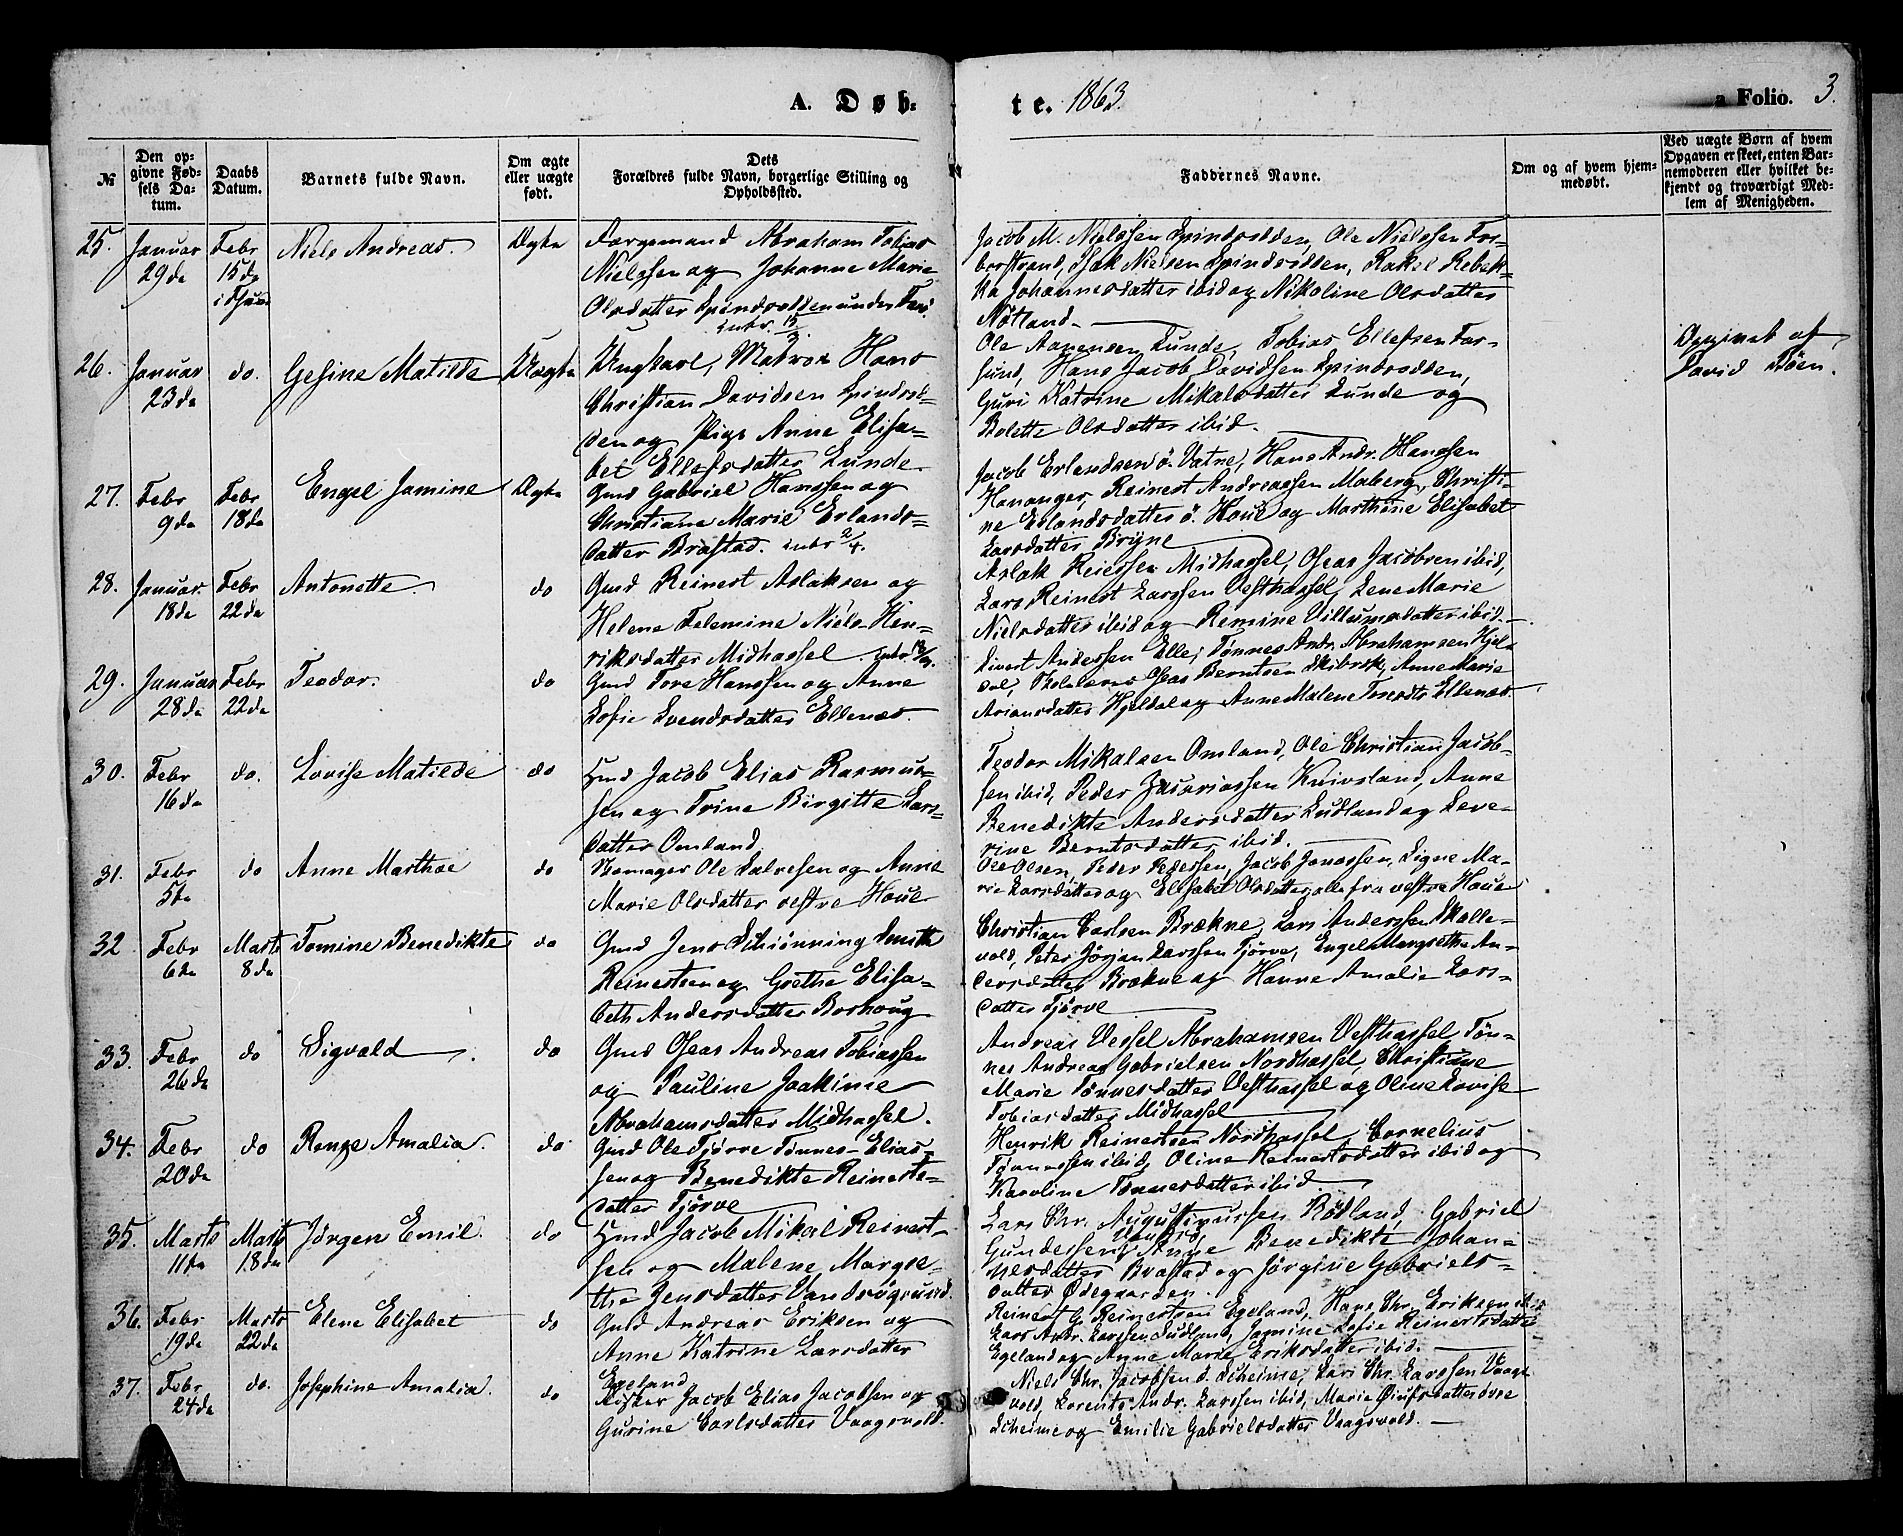 A. Døb-
te. 1863.
a Folio. 3.
№
Den op-
givne Fød-
sels Da-
tum.
Daabs
Datum.
Barnets fulde Navn.
Om ægte
eller uægte
født.
Dets
Forældres fulde Navn, borgerlige Stilling og
Opholdssted.
Faddernes Navne.
Om og af hvem hjem-
medøbt.
Ved uægte Børn af hvem
Opgaven er skeet, enten Bar-
nemoderen eller hvilket be-
kjendt og troværdigt Med-
lem af Menigheden.
25.
Januar
29de
Febr
15de
Niels Andreas.
Ægte
Færgemand Abraham Tobias
Nielssen og Johanne Marie
Olsdatter Spindsodden under
Jacob M. Nielssen Spindsodden, Ole Nielssen
Isak Nielsen Spindsodden, Rakel Rebek-
ka Johannesdatter ibid og Nikoline Olsdatter
Nøtland.
26.
Januar
23de
do.
Gesine Matilde
Uægte
Ungkarl, Matros Hans
Christian Davidsen Spindsod-
den og Pige Anne Elisa-
bet Ellefsdatter Lunde
Ole Aanensen Lunde, Tobias Ellefsen Far-
sund, Hans Jacob Davidsen Spindsodden,
Guri Katrine Mikalsdatter Lunde og
Bolette Olsdatter ibid.
Opgivet af
David Støen.
27.
Febr
9de
Febr
18de
Engel Jamine
Ægte
Gmd Gabriel Hanssen og
Christiane Marie Erlands-
datter Brastad. intr 2/4.
Jacob Erlandsen ø. Vatne, Hans Andr. Hanssen
Hananger, Reinert Andreassen Maberg, Christi-
ne Erlandsdatter ø. Houe og Marthine Elisabet
Larsdatter Bryne
28.
Januar
18de
Febr
22de
Antonette.
do
Gmd Reinert Aslaksen og
Helene Telemine Niels Hen-
riksdatter Midhassel.
Aslak Reierssen Midhassel, Oseas Jacobsen ibid,
Lars Reinert Larssen Vesthassel, Lene Marie
Nielsdatter ibid og Remine Villumsdatter ibid.
29.
Januar
28de
Febr
22de
Teodor.
do
Gmd Tore Hanssen og Anne
Sofie Svendsdatter Ellenæs.
Sivert Anderssen Elle, Tønnes Andr. Abrahamsen Hjel-
dal, Skolelærer Oseas Berntsen Skibrsk, Anne Marie
Ariansdatter Hjeldal og Anne Malene Toresdtr Ellenæs.
30.
Febr
16de
do.
Lovise Matilde
do
Hmd Jacob Elias Rasmus-
sen og Trine Birgitte Lars-
datter Omland
Teodor Mikalsen Omland, Ole Christian Jacob-
sen ibid, Peder Zakriassen Knivsland, Anne
Benedikte Andersdatter Sudland og Seve-
rine Berntsdatter ibid.
31.
Febr
5te
do
Anne Marthæ
do
Skomager Ole Salvesen og Anne
Marie Olsdatter vestre Houe
Ole Olsen, Peder Pederssen, Jacob Jonassen, Signe Ma-
rie Larsdatter og Elisabet Olsdatter alle fra vestre Houe
32
Febr
6te
Marts
8de
Tomine Benedikte
do
Gmd Jens Schiønning Smith
Reinertsen og Grethe Elisa-
beth Andersdatter Borhoug
Christian Carlsen Brækne, Lars Anderssen Skolle-
vold, Peter Jørjan Larssen Tjørve, Engel Margrethe An-
dersdatter Brækne og Hanne Amalie Lars-
datter Tjørve
33.
Febr
26de
do
Sigvald
do
Gmd Oseas Andreas Tobiassen
og Pauline Joakime
Abrahamsdatter Midhassel.
Andreas Vessel Abrahamsen Vesthassel, Tøn-
nes Andreas Gabrielsen Nordhassel, Christiane
Marie Tønnesdatter Vesthassel og Oline Lovise
Tobiasdatter Midhassel
34.
Febr
20de
do
Renze Amalia.
do
Gmd Ole Tjørve Tønnes Elias-
sen og Benedikte Reinerts-
datter Tjørve
Henrik Reinertsen Nordhassel, Cornelius
Tønnessen ibid, Oline Reinertsdatter ibid og
Karoline Tønnesdatter ibid.
35.
Marts
11te
Marts
18de
Jørgen Emil.
do
Hmd Jacob Mikal Reinert-
sen og Malene Margre-
the Jensdatter Vandsøgrund.
Lars Chr. Augustinussen Rødland, Gabriel
Gundersen Anne Benedikte Johan-
nesdatter Brastad og Jørgine Gabriels-
datter Ødegaarden.
36.
Febr
19de
Marts
22de
Elene Elisabet
do
Gmd Andreas Eriksen og
Anne Katrine Larsdatter
Egeland
Reinert G. Reinertsen Egeland, Hans Chr. Eriksen ibid
Lars Andr. Larssen Sudland, Jamine Sofie Reinertsdatter
Egeland og Anne Marie Eriksdatter ibid.
37.
Febr
24de
do.
Josephine Amalia.
do
Fisker Jacob Elias Jacobsen og
Gurine Carlsdatter Vaagsvold.
Niels Chr. Jacobsen S. Scheime, Lars Chr. Larssen Vaags-
vold, Lorents Andr. Larssen ibid, Marie
Scheime og Emilie Gabrielsdatter Vaagsvold.